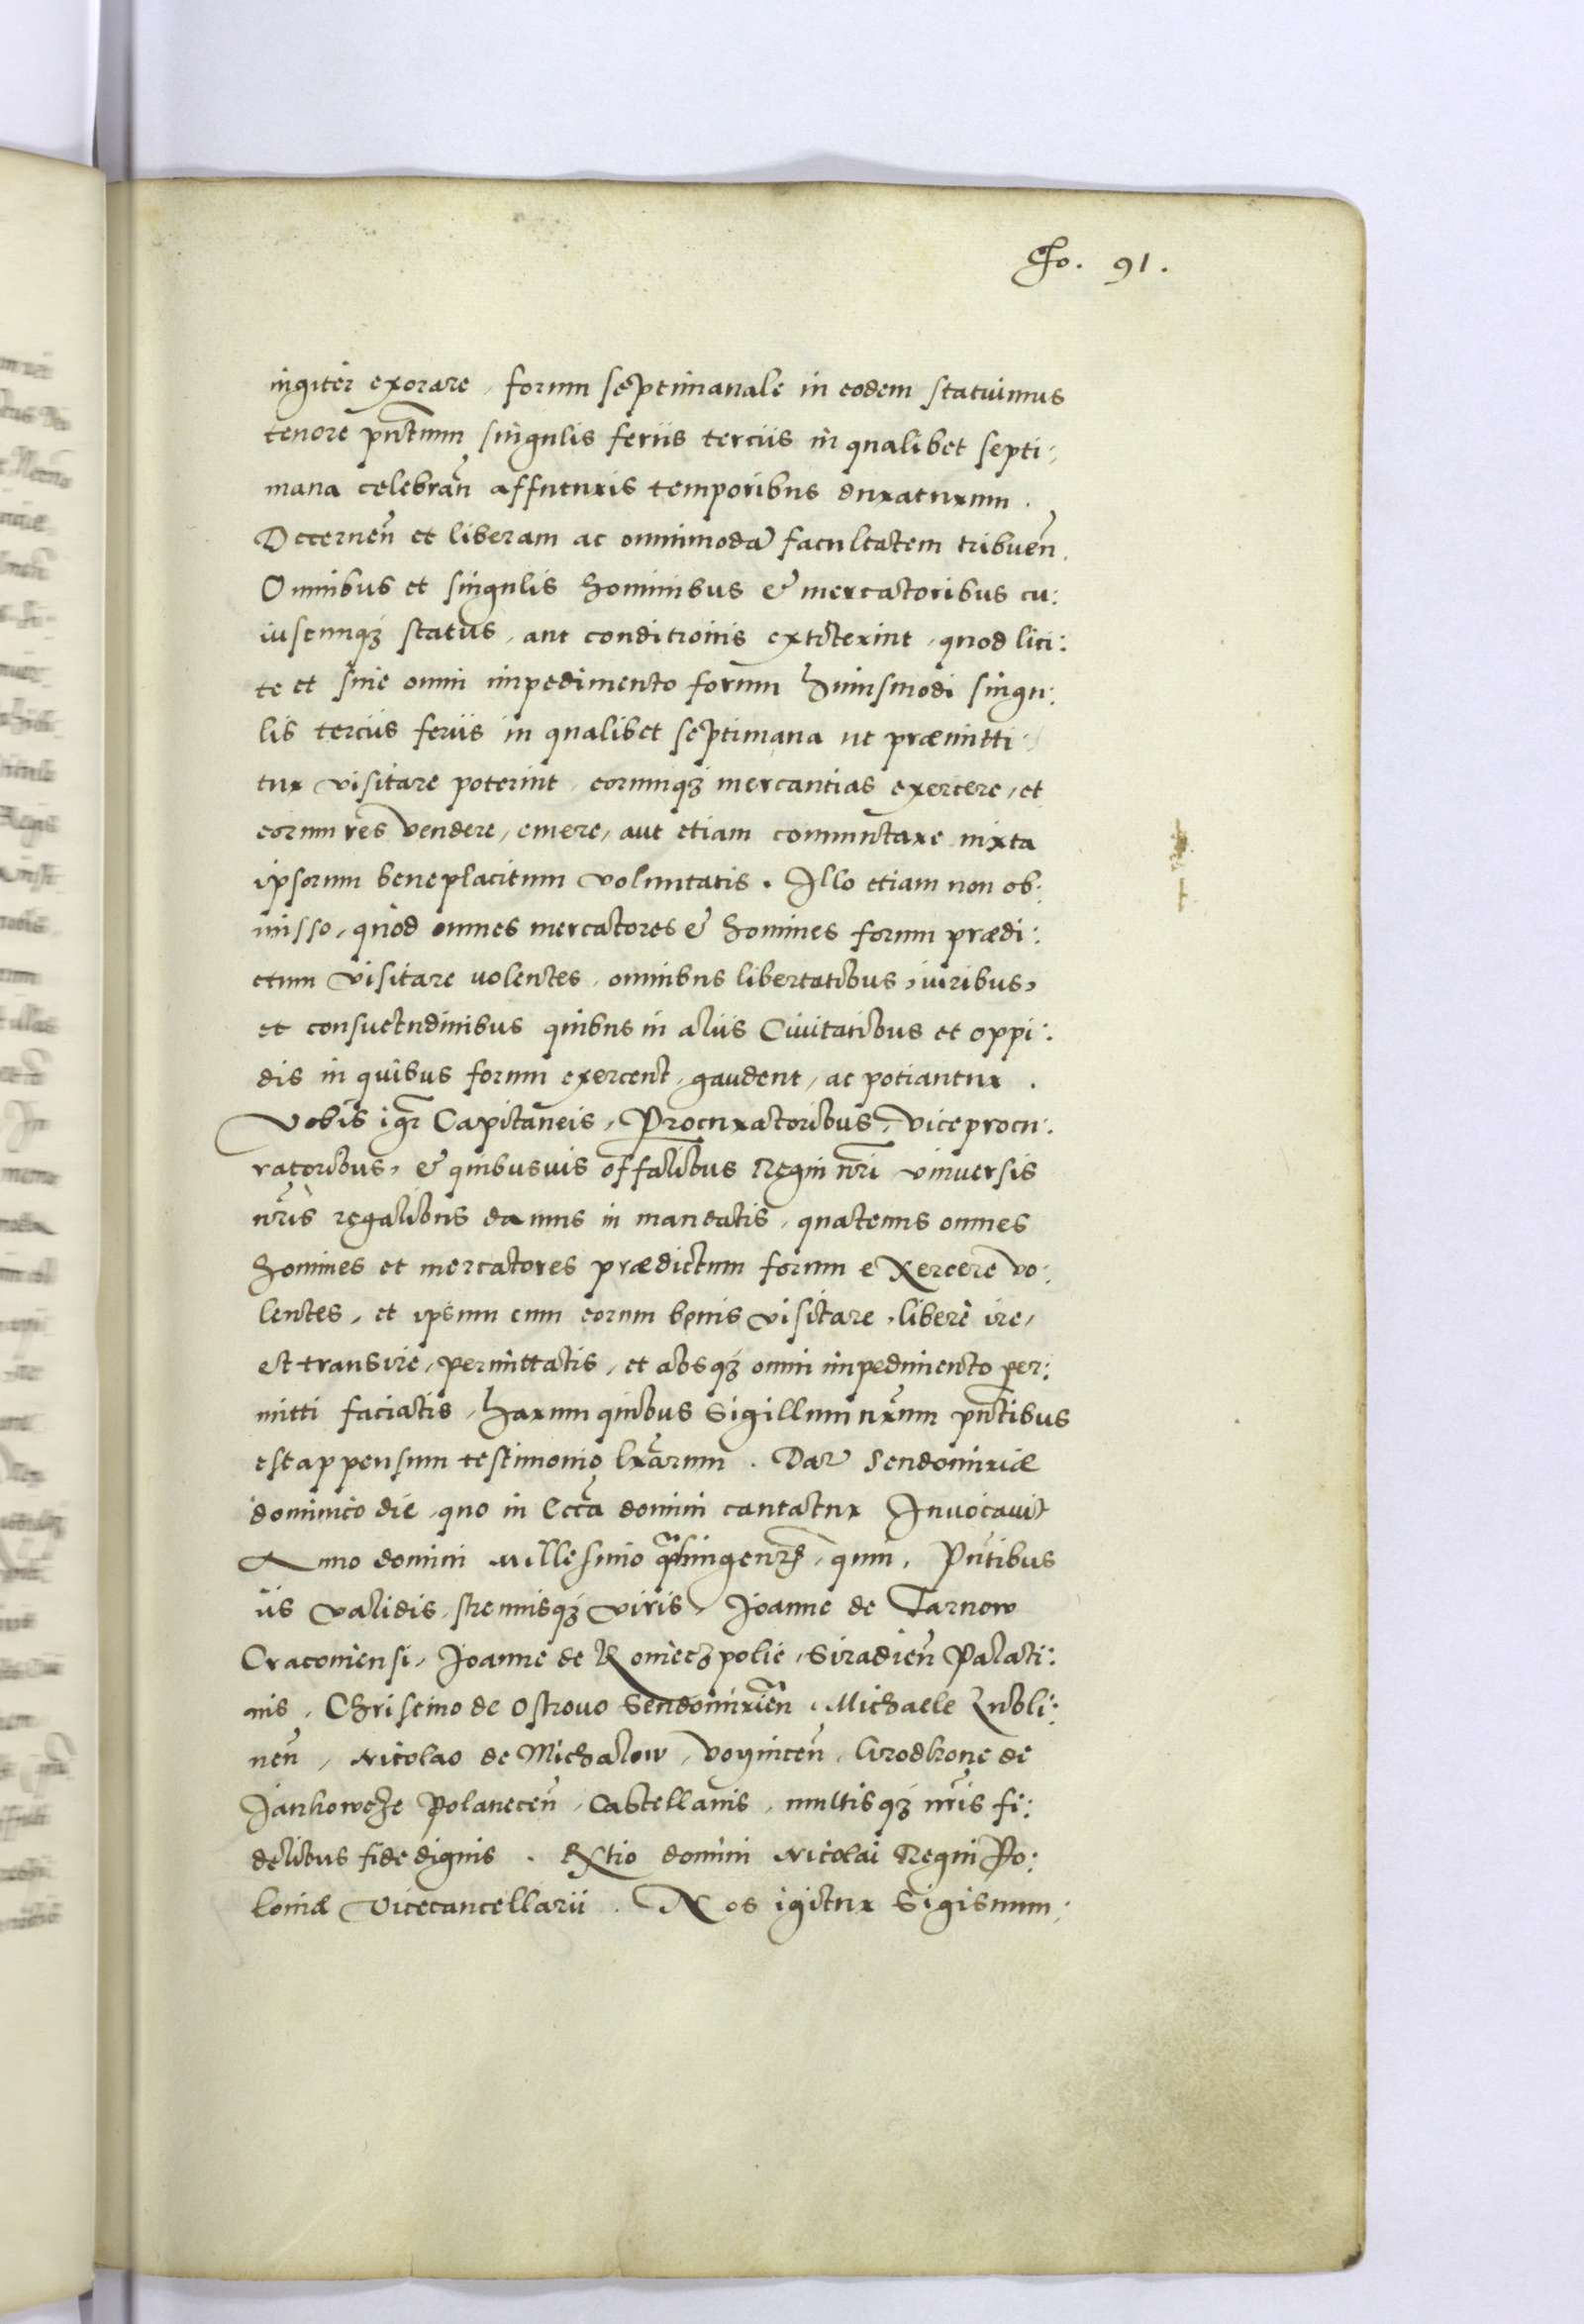 Fo. 91.
iugiter exorare, forum septimanale in eodem statuimus
tenore pñtium singulis feriis terciis in qualibet septi:
mana celebrañ affuturis temporibus duraturum.
Decerneñ et liberam ac omnimodã facultatem tribueñ.
Omnibus et singulis hominibus & mercatoribus cu:
iuscunqꝫ status, aut conditionis extiterint, quod lici:
te et sine omni impedimento forum huiusmodi singu:
lis terciis feriis in qualibet septimana ut præmitti:
tur visitare poterint, eorumqꝫ mercantias exercere, et
eorum res vendere, emere, aut etiam commutare iuxta
ipsorum beneplacitum voluntatis. Illo etiam non ob:
misso, quod omnes mercatores & homines forum prædi:
ctum visitare volentes, omnibus libertatibus, iuribus,
et consuetudinibus quibus in aliis Civitatibus et oppi:
dis in quibus forum exercent, gaudent, ac potiantur.
Vobis igr̃ Capitaneis, Procuratoribus, viceprocu:
ratoribus, & quibusvis offalibus Regni nr̃i vniversis
nr̃is regalibus damus in mandatis, quatenus omnes
homines et mercatores prædictum forum exercere vo:
lentes, et ipsum cum eorum bonis visitare, libere ire,
et transire, permittatis, et absqꝫ omni impedimento per:
mitti faciatis, harum quibus Sigillum nr̃um pñtibus
est appensum testimonio lr̃arum. Datr̃ Sendomiriæ
dominico die, quo in Eccã domini cantatur Invocavit
Anno domini Millesimo quadringen. quin. Pñtibus
iis validis, strenuisqꝫ viris, Joanne de Tarnow
Cracoviensi, Joanne de Konieczpolie, Siradieñ Palati:
nis, Christino de Ostrouo Sendomirieñ, Michaele Lubli:
neñ, Nicolao de Michalow, Voyniceñ, Grodkone de
Jankowcze Polaneceñ, Castellanis, multisqꝫ nr̃is fi:
delibus fide dignis. Extio domini Nicolai Regni Po:
loniæ Vicecancellarii. Nos igitur Sigismun: